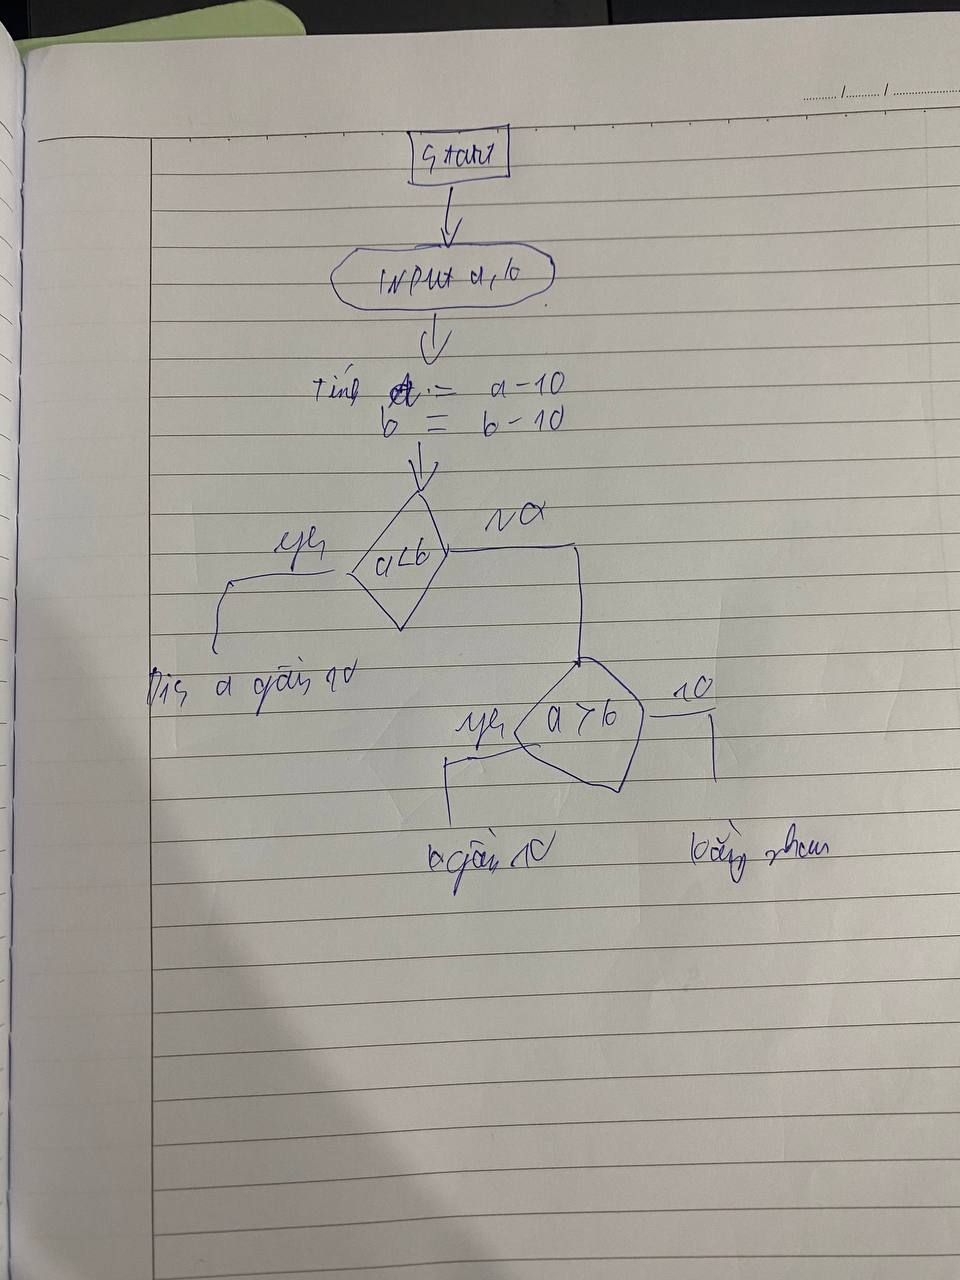 Start
INPUT a, b
tính a = a - 10
b = b - 10
yes
NO
a < b
Dis a gần 10
yes
a > b
NO
b gần 10
bằng nhau